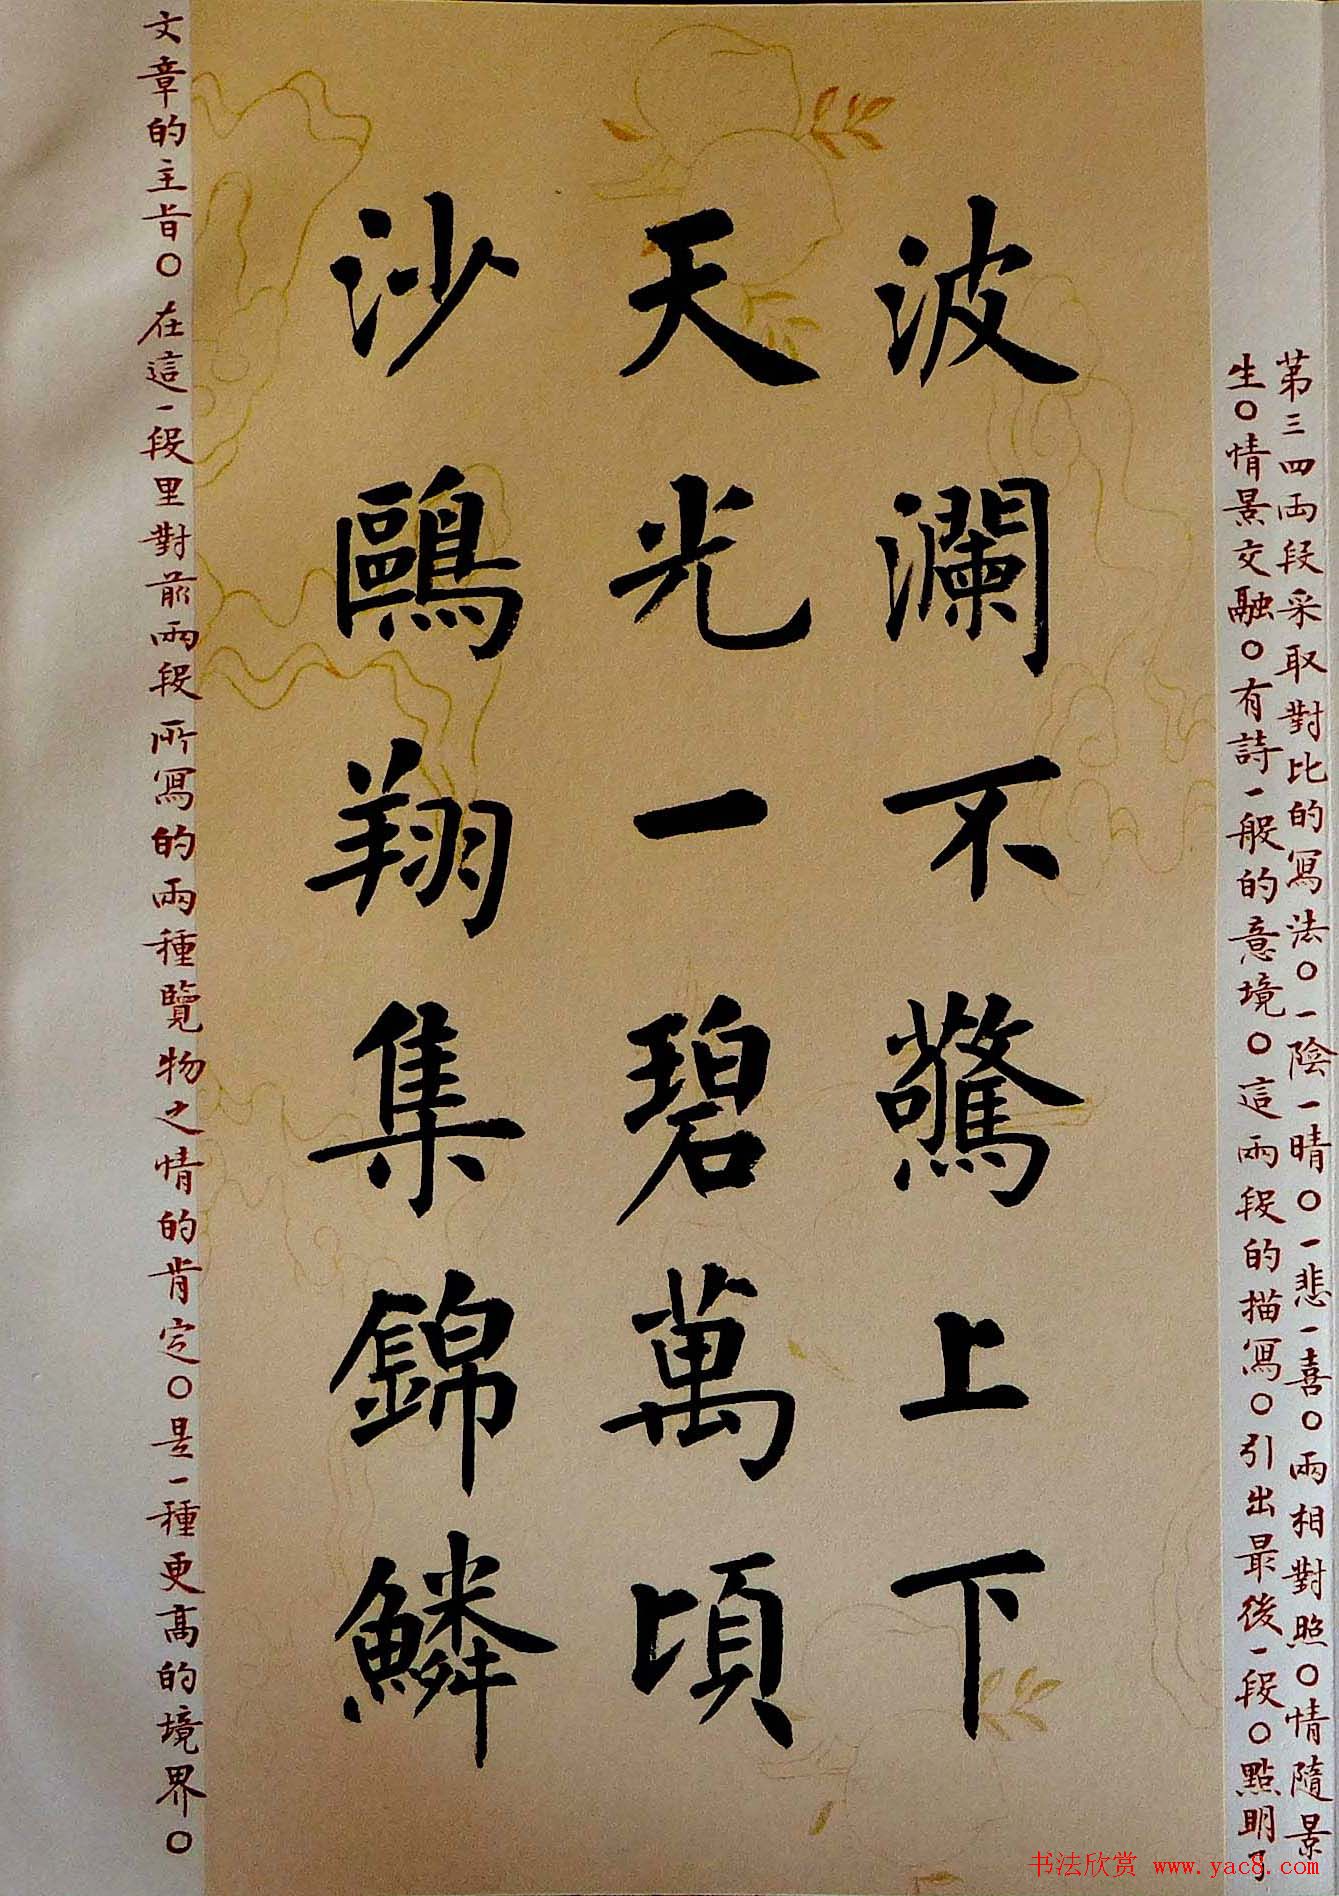 第三四両段采取對比的寫法〇一陰一晴〇一悲一喜〇兩相對照〇情隨景
生〇情景交融〇有詩一般的意境〇這兩段的描寫〇引出最後一段〇點明了
波瀾不驚上下
天光一碧萬頃
沙鷗翔集錦鱗
文章的主旨〇在這一段里對前兩段所寫的兩種覽物之情的肯定〇是一種更高的境界〇
书法欣赏 www.yac8.com